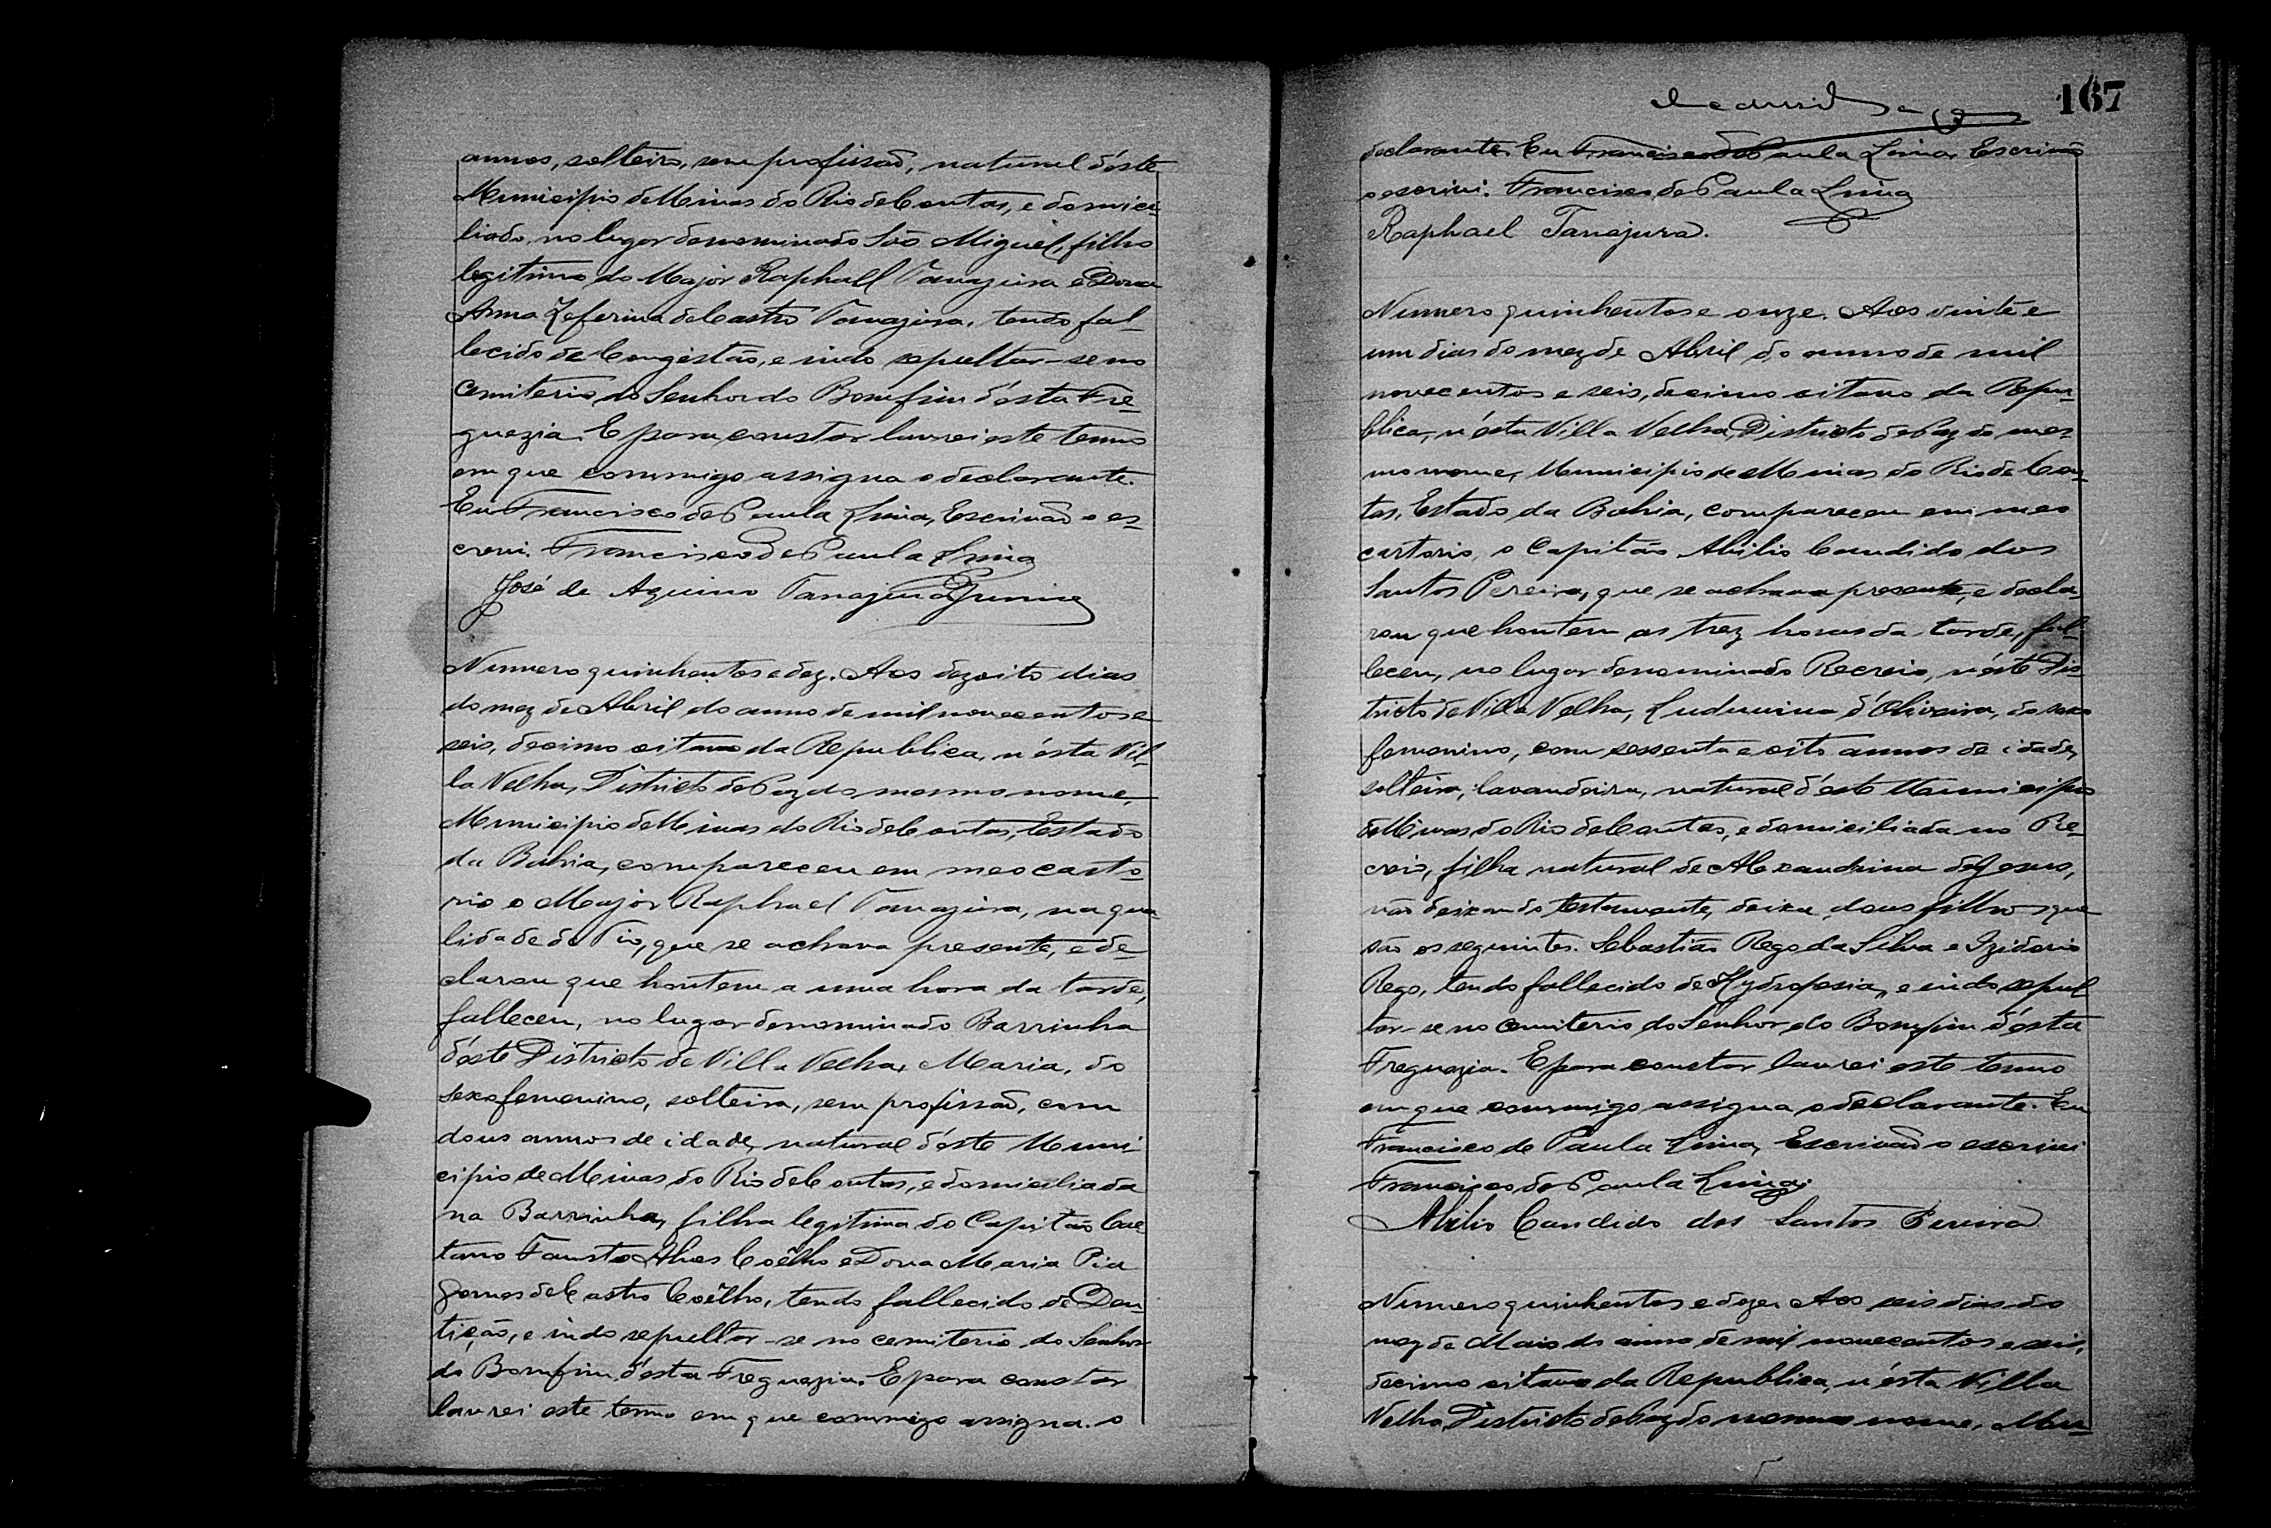 annos, solteiro, sem profissaõ, natural d'éste
Municipio de Minas do Rio de Contas, e domici-
liado, no lugar denominado Saõ Miguel, filho
legitimo do Major Raphaell Tanajura e Dona
Anna Zeferina de Castro Tanajura, tendo fal-
lecido de Congestão, e indo sepultar-se no
Cemiterio do Senhor do Bomfim d'ésta Fre-
guezia. E para constar lavrei este termo
em que commigo assigna o declarante.
Eu Francisco de Paula Lima, Escrivaõ o es-
crevi. Francisco de Paula Lima
José de Aquino Tanajura Junior
Numero quinhentos e dez. Aos dezoito dias
do mez de Abril do anno de mil novecentos e
seis, decimo oitavo da Republica, n'ésta Vil-
la Velha, Districto de Paz do mesmo nome,
Municipio de Minas do Rio de Contas, Estado
da Bahia, compareceu em meo carto-
rio o Major Raphael Tanajura, na qua
lidade de Tio, que se achava presente, e de-
clarou que hontem a uma hora da tarde,
falleceu, no lugar denominado Barrinha
d'éste Districto de Villa Velha, Maria, do
sexo femenino, solteira, sem profissaõ, com
dous annos de idade, natural d'éste Muni
cipio de Minas do Rio de Contas, e domiciliada
na Barrinha, filha legitima do Capitaõ Cae-
tano Fausto Alves Coêlho e Dona Maria Pia
Gomes de Castro Coêlho, tendo fallecido de Den-
tição, e indo sepultar-se no cemiterio do Senhor
do Bomfim d'ésta Freguezia. E para constar
lavrei este termo em que commigo assigna o
167
declarante. Eu Francisco de Paula Lima, Escrivaõ
o escrevi. Francisco de Paula Lima
Raphael Tanajura.
Numero quinhentos e onze. Aos vinte e
um dias do mez de Abril do anno de mil
novecentos e seis, decimo oitavo da Repu-
blica, n'ésta Villa Velha, Districto de Paz do mes-
mo nome, Municipio de Minas do Rio de Con-
tas, Estado da Bahia, compareceu em meo
cartorio, o Capitão Abilio Candido dos
Santos Pereira, que se achava presente, e decla-
rou que hontem as trez horas da tarde, fal-
leceu, no lugar denominado Recreio, n'éste Dis-
tricto de Villa Velha, Luduvina d'Oliveira, do sexo
femenino, com sessenta e oito annos de idade,
solteira, lavandeira, natural d'éste Municipio
de Minas do Rio de Contas, e domiciliada no Re-
creio, filha natural de Alexandrina de Jesus,
não deixando testamente, deixa dous filhos que
são os seguintes. Sebastião Rego da Silva e Izidorio
Rego, tendo fallecido de Hydropesia, e indo sepul
tar-se no cemiterio do Senhor do Bomfim d'ésta
Freguezia. E para constar lavrei este termo
em que commigo assigna o declarante. Eu
Francisco de Paula Lima, Escrivaõ o escrevi
Francisco de Paula Lima
Abilio Candido dos Santos Pereira
Numero quinhentos e doze. Aos seis dias do
mez de Maio do anno de mil novecentos e seis,
decimo oitavo da Republica, n'ésta Villa
Velha, Districto de Paz do mesmo nome, Mu-